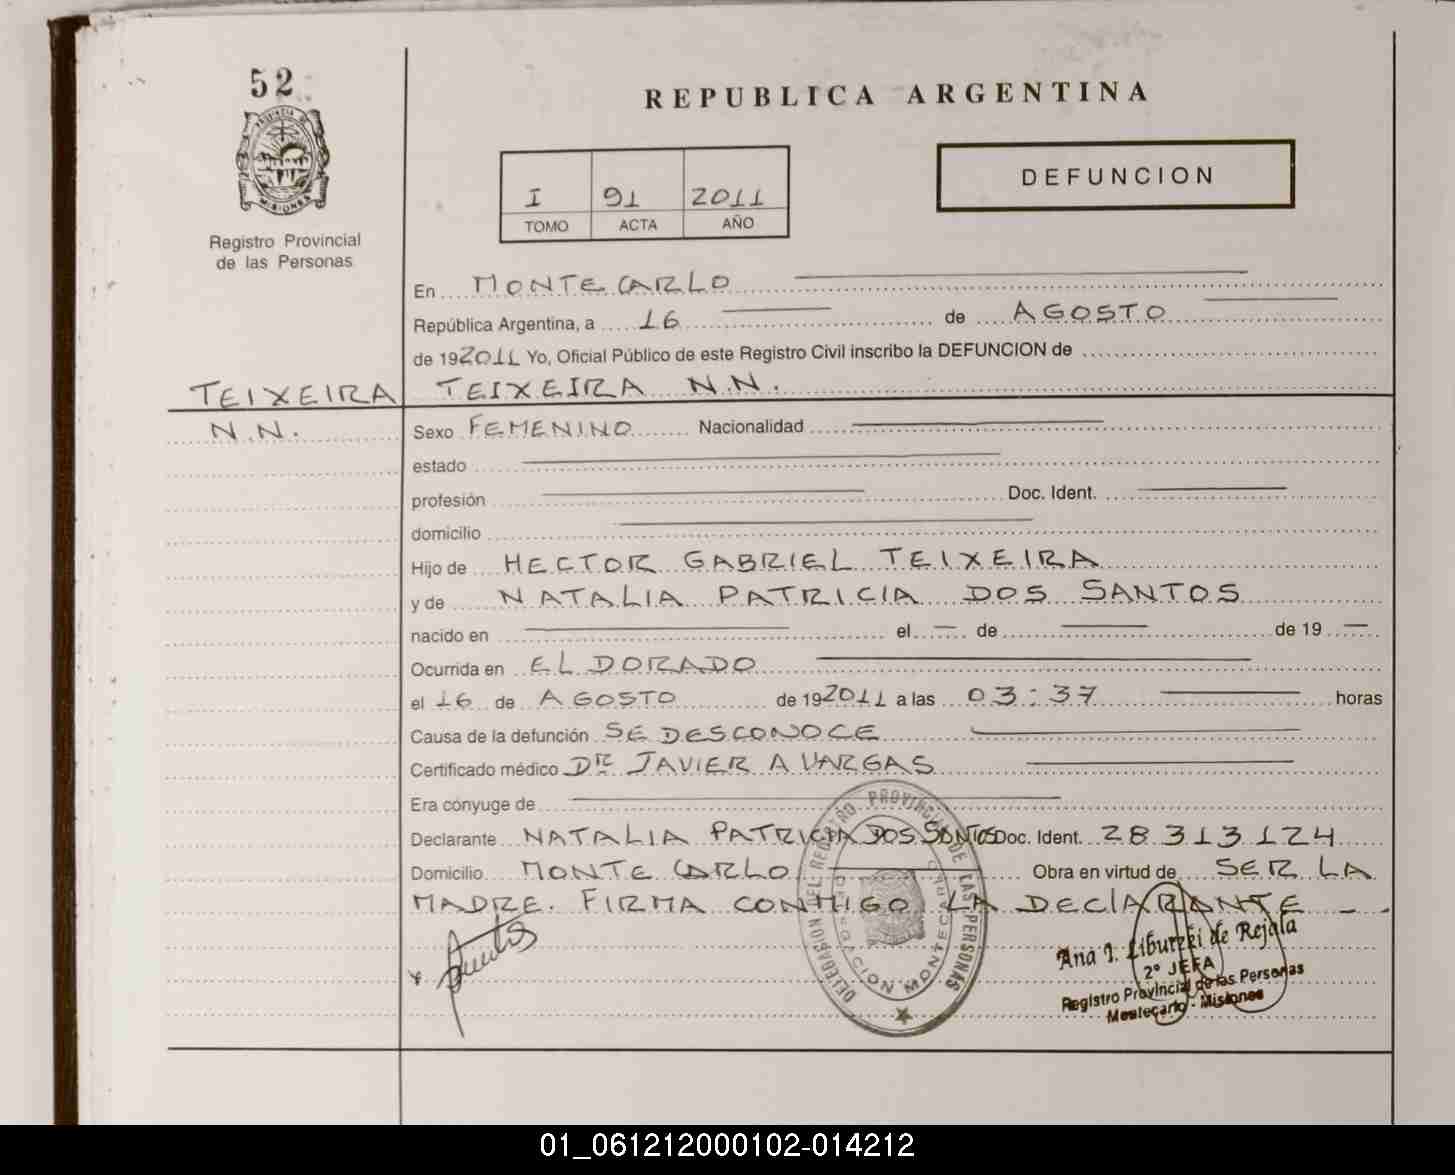 52
PROVINCIA DE
MISIONES
Registro Provincial
de las Personas
REPUBLICA ARGENTINA
I 91 2011
TOMO ACTA AÑO
DEFUNCION
En MONTECARLO
República Argentina, a 16 de AGOSTO
de 192011 Yo, Oficial Público de este Registro Civil inscribo la DEFUNCION de
TEIXEIRA TEIXEIRA N.N.
N.N. Sexo FEMENINO Nacionalidad
estado
profesión Doc. Ident.
domicilio
Hijo de HECTOR GABRIEL TEIXEIRA
y de NATALIA PATRICIA DOS SANTOS
nacido en el de de 19
Ocurrida en ELDORADO
el 16 de AGOSTO de 192011 a las 03:37 horas
Causa de la defunción SE DESCONOCE
Certificado médico Dr JAVIER A VARGAS
Era cónyuge de
Declarante NATALIA PATRICIA DOS SANTOS Doc. Ident. 28313124
Domicilio MONTECARLO Obra en virtud de SER LA
MADRE. FIRMA CONMIGO LA DEClARANTE
DELEGACION DEL REGISTRO PROVINCIAL DE LAS PERSONAS
DELEGACION MONTECARLO
Ana I. Liburzki de Rejala
2º JEFA
Registro Provincial de las Personas
Montecarlo - Misiones
01_061212000102-014212